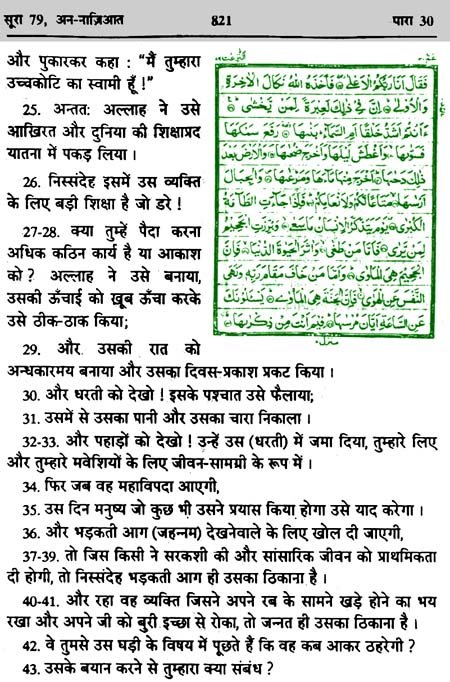 सूरा 79, अन-नाज़िआत 821 पारा 30
और पुकारकर कहा : “मैं तुम्हारा
उच्चकोटि का स्वामी हूँ !”
25. अन्ततः अल्लाह ने उसे
आख़िरत और दुनिया की शिक्षाप्रद
यातना में पकड़ लिया ।
26. निस्संदेह इसमें उस व्यक्ति
के लिए बड़ी शिक्षा है जो डरे !
27-28. क्या तुम्हें पैदा करना
अधिक कठिन कार्य है या आकाश
को ? अल्लाह ने उसे बनाया,
उसकी ऊँचाई को ख़ूब ऊँचा करके
उसे ठीक-ठाक किया;
فَقَالَ اَنَا رَبُّكُمُ الْاَعْلٰى فَاَخَذَهُ اللّٰهُ نَكَالَ الْاٰخِرَةِ
وَالْاُوْلٰى اِنَّ فِيْ ذٰلِكَ لَعِبْرَةً لِّمَنْ يَّخْشٰى
ءَاَنْتُمْ اَشَدُّ خَلْقًا اَمِ السَّمَآءُ بَنٰىهَا رَفَعَ سَمْكَهَا
فَسَوّٰىهَا وَاَغْطَشَ لَيْلَهَا وَاَخْرَجَ ضُحٰىهَا وَالْاَرْضَ بَعْدَ
ذٰلِكَ دَحٰىهَا اَخْرَجَ مِنْهَا مَآءَهَا وَمَرْعٰىهَا وَالْجِبَالَ
اَرْسٰىهَا مَتَاعًا لَّكُمْ وَلِاَنْعَامِكُمْ فَاِذَا جَآءَتِ الطَّآمَّةُ
الْكُبْرٰى يَوْمَ يَتَذَكَّرُ الْاِنْسَانُ مَا سَعٰى وَبُرِّزَتِ الْجَحِيْمُ
لِمَنْ يَّرٰى فَاَمَّا مَنْ طَغٰى وَاٰثَرَ الْحَيٰوةَ الدُّنْيَا فَاِنَّ
الْجَحِيْمَ هِيَ الْمَاْوٰى وَاَمَّا مَنْ خَافَ مَقَامَ رَبِّهٖ وَنَهَى
النَّفْسَ عَنِ الْهَوٰى فَاِنَّ الْجَنَّةَ هِيَ الْمَاْوٰى يَسْـَٔلُوْنَكَ
عَنِ السَّاعَةِ اَيَّانَ مُرْسٰىهَا فِيْمَ اَنْتَ مِنْ ذِكْرٰىهَا
29. और उसकी रात को
अन्धकारमय बनाया और उसका दिवस-प्रकाश प्रकट किया ।
30. और धरती को देखो ! इसके पश्चात उसे फैलाया;
31. उसमें से उसका पानी और उसका चारा निकाला ।
32-33. और पहाड़ों को देखो ! उन्हें उस (धरती) में जमा दिया, तुम्हारे लिए
और तुम्हारे मवेशियों के लिए जीवन-सामग्री के रूप में ।
34. फिर जब वह महाविपदा आएगी,
35. उस दिन मनुष्य जो कुछ भी उसने प्रयास किया होगा उसे याद करेगा ।
36. और भड़कती आग (जहन्नम) देखनेवाले के लिए खोल दी जाएगी,
37-39. तो जिस किसी ने सरकशी की और सांसारिक जीवन को प्राथमिकता
दी होगी, तो निस्संदेह भड़कती आग ही उसका ठिकाना है ।
40-41. और रहा वह व्यक्ति जिसने अपने रब के सामने खड़े होने का भय
रखा और अपने जी को बुरी इच्छा से रोका, तो जन्नत ही उसका ठिकाना है ।
42. वे तुमसे उस घड़ी के विषय में पूछते हैं कि वह कब आकर ठहरेगी ?
43. उसके बयान करने से तुम्हारा क्या संबंध ?